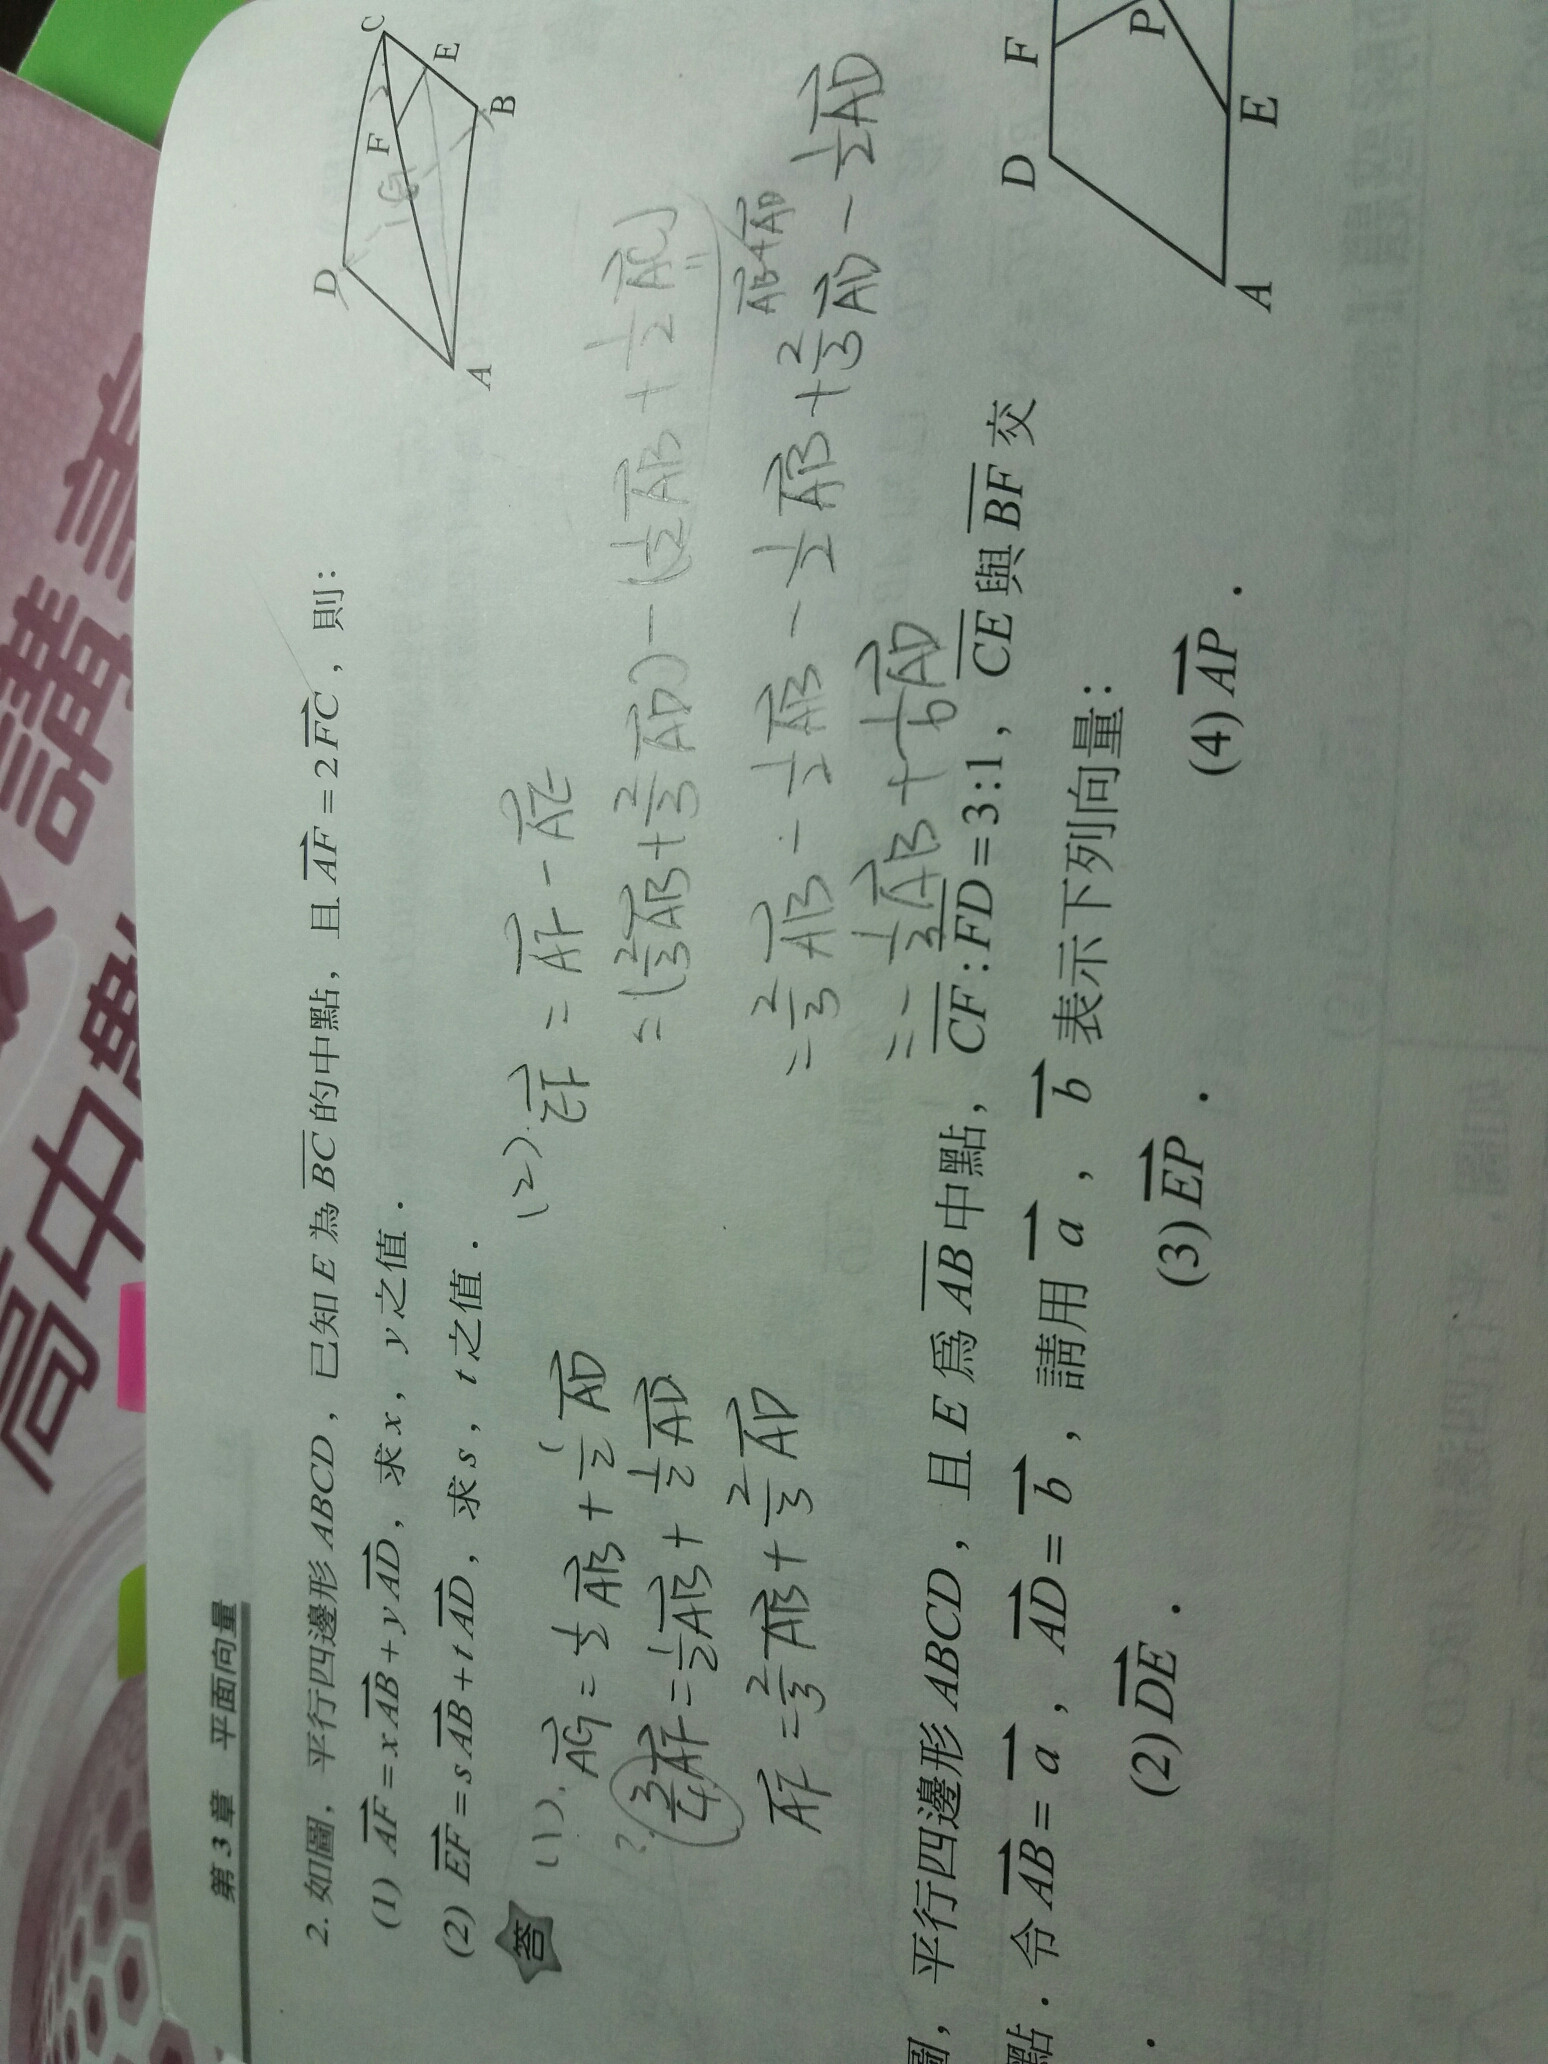 高中數
講義
第 3 章 平面向量
2. 如圖，平行四邊形 ABCD，已知 E 為 BC 的中點，且 AF = 2FC，則：
(1) AF = xAB + yAD，求 x，y 之值．
(2) EF = sAB + tAD，求 s，t 之值．
D
C
F
E
G
A
B
答
(1). AG = 1/2 AB + 1/2 AD
? 3/4 AF = 1/2 AB + 1/2 AD
AF = 2/3 AB + 2/3 AD
(2). EF = AF - AE
= (2/3 AB + 2/3 AD) - (1/2 AB + 1/2 AC)
AB+AD
= 2/3 AB - 1/2 AB - 1/2 AB + 2/3 AD - 1/2 AD
= - 1/3 AB + 1/6 AD
圖，平行四邊形 ABCD，且 E 爲 AB 中點，CF : FD = 3 : 1，CE 與 BF 交
點．令 AB = a，AD = b，請用 a，b 表示下列向量：
(2) DE． (3) EP． (4) AP．
D
F
P
A
E